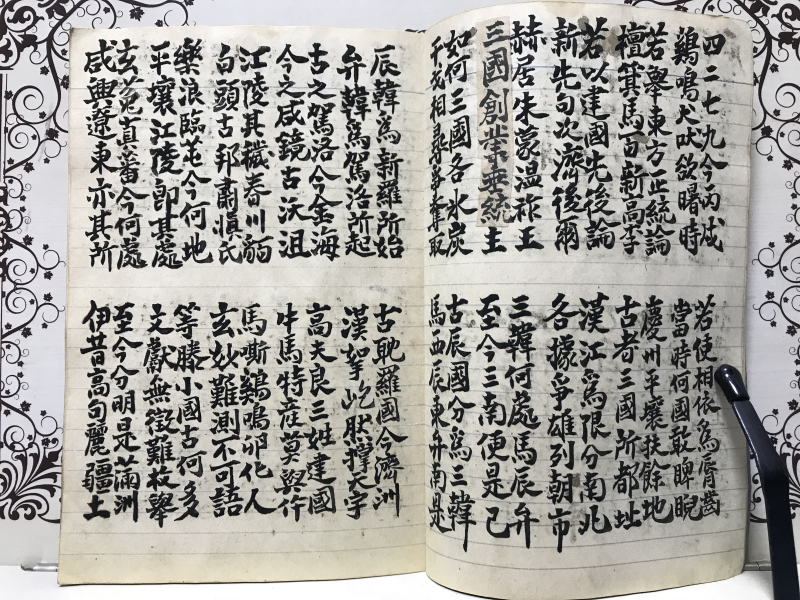 四二七九今丙戌
鷄鳴犬吠欲曙時
若擧東方正統論
檀箕馬百新高李
若以建國先後論
新先句次濟後爾
赫居朱蒙溫祚王
三國創業垂統主
如何三國各氷炭
干戈相尋爭奪取
若使相依爲脣齒
當時何國敢睥睨
慶州平壤扶餘地
古者三國所都址
漢江爲限分南北
各據爭雄列朝市
三韓何處馬辰弁
至今三南便是已
古辰國分爲三韓
馬西辰東弁南是
辰韓爲新羅所始
弁韓爲駕洛所起
古之駕洛今金海
今之咸鏡古沃沮
江陵其穢春川貊
白頭古邦肅愼氏
樂浪臨芚今何地
平壤江陵卽其處
玄菟眞番今何處
咸興遼東亦其所
古耽羅國今濟洲
漢拏屹然撑天宇
高夫良三姓建國
牛馬特産莫與仵
馬嘶鷄鳴卵化人
玄妙難測不可語
等滕小國古何多
文獻無徵難枚擧
至今分明是滿洲
伊昔高句麗疆土